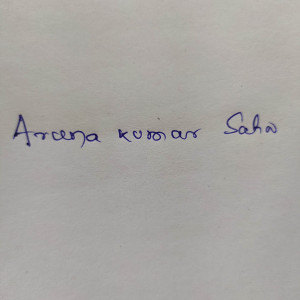 Aruna Kumar Sahu